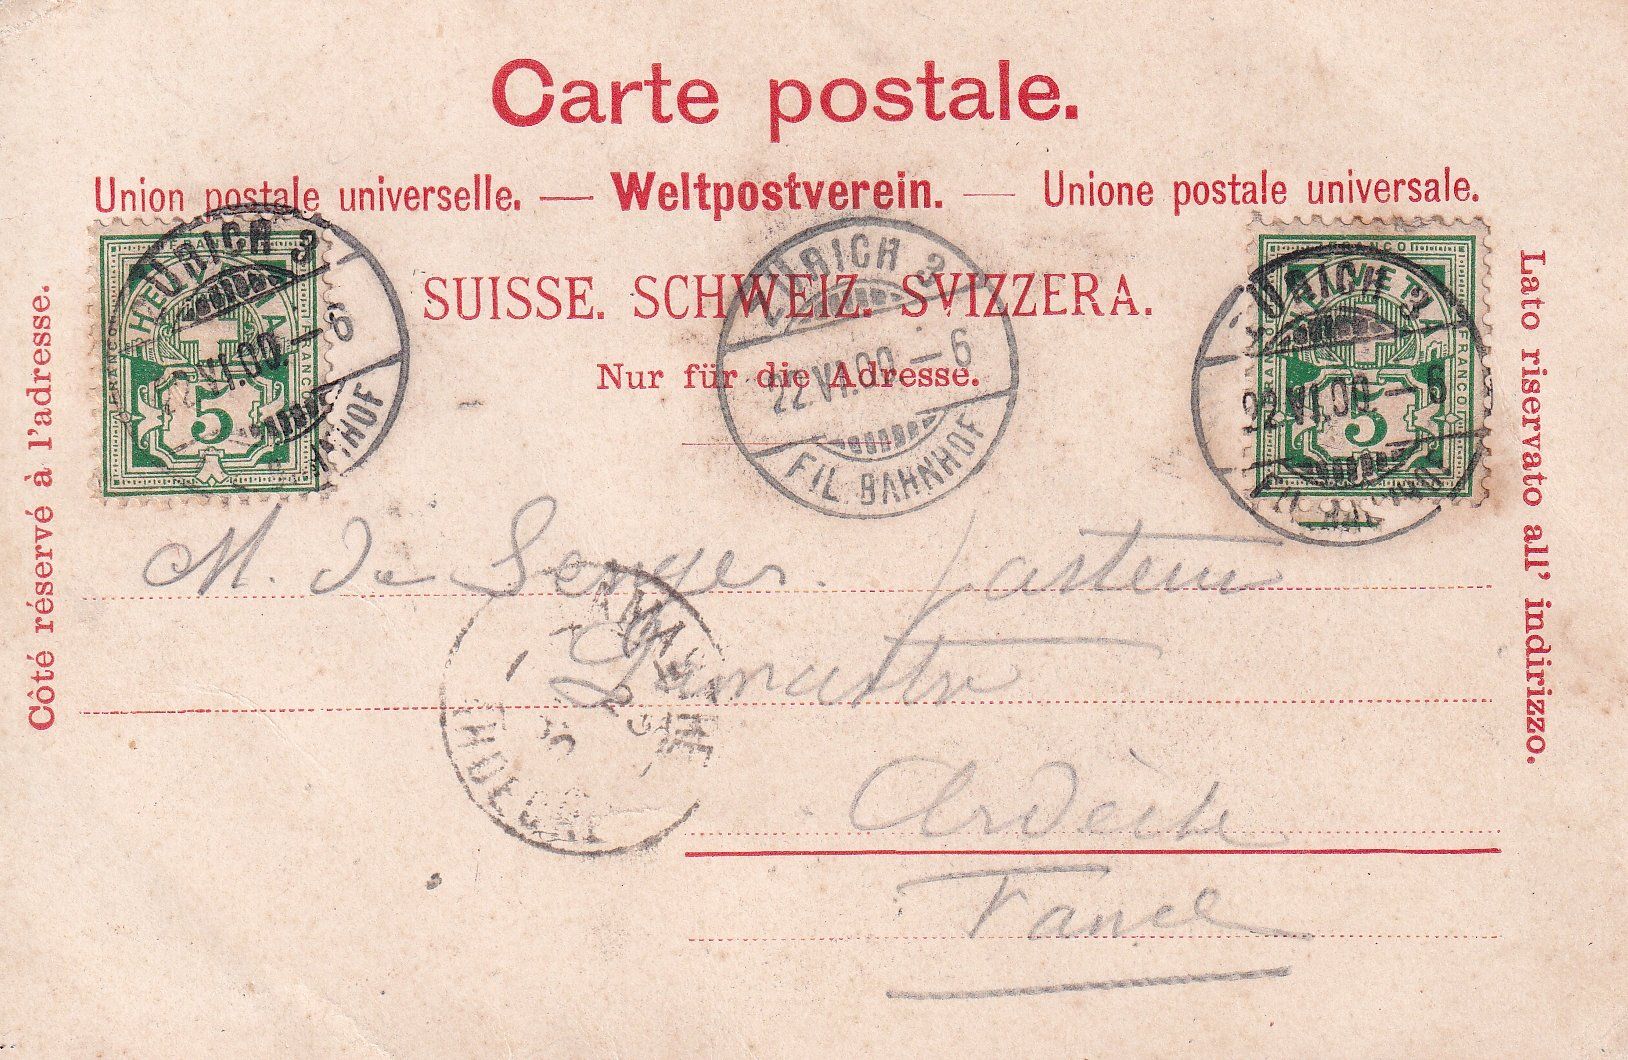 Carte postale.
Union postale universelle. — Weltpostverein. — Unione postale universale.
SUISSE. SCHWEIZ. SVIZZERA.
Nur für die Adresse.
Côté réservé à l'adresse.
Lato riservato all' indirizzo.
FRANCO
HELVETIA
5
ZÜRICH 3
22.VI.00.—6
FIL. BAHNHOF
ZÜRICH 3
22.VI.00.—6
FIL. BAHNHOF
FRANCO
HELVETIA
5
ZÜRICH 3
22.VI.00.—6
FIL. BAHNHOF
M. de pasteur
Lamastre
Ardèche
France
LAMASTRE
ARDECHE